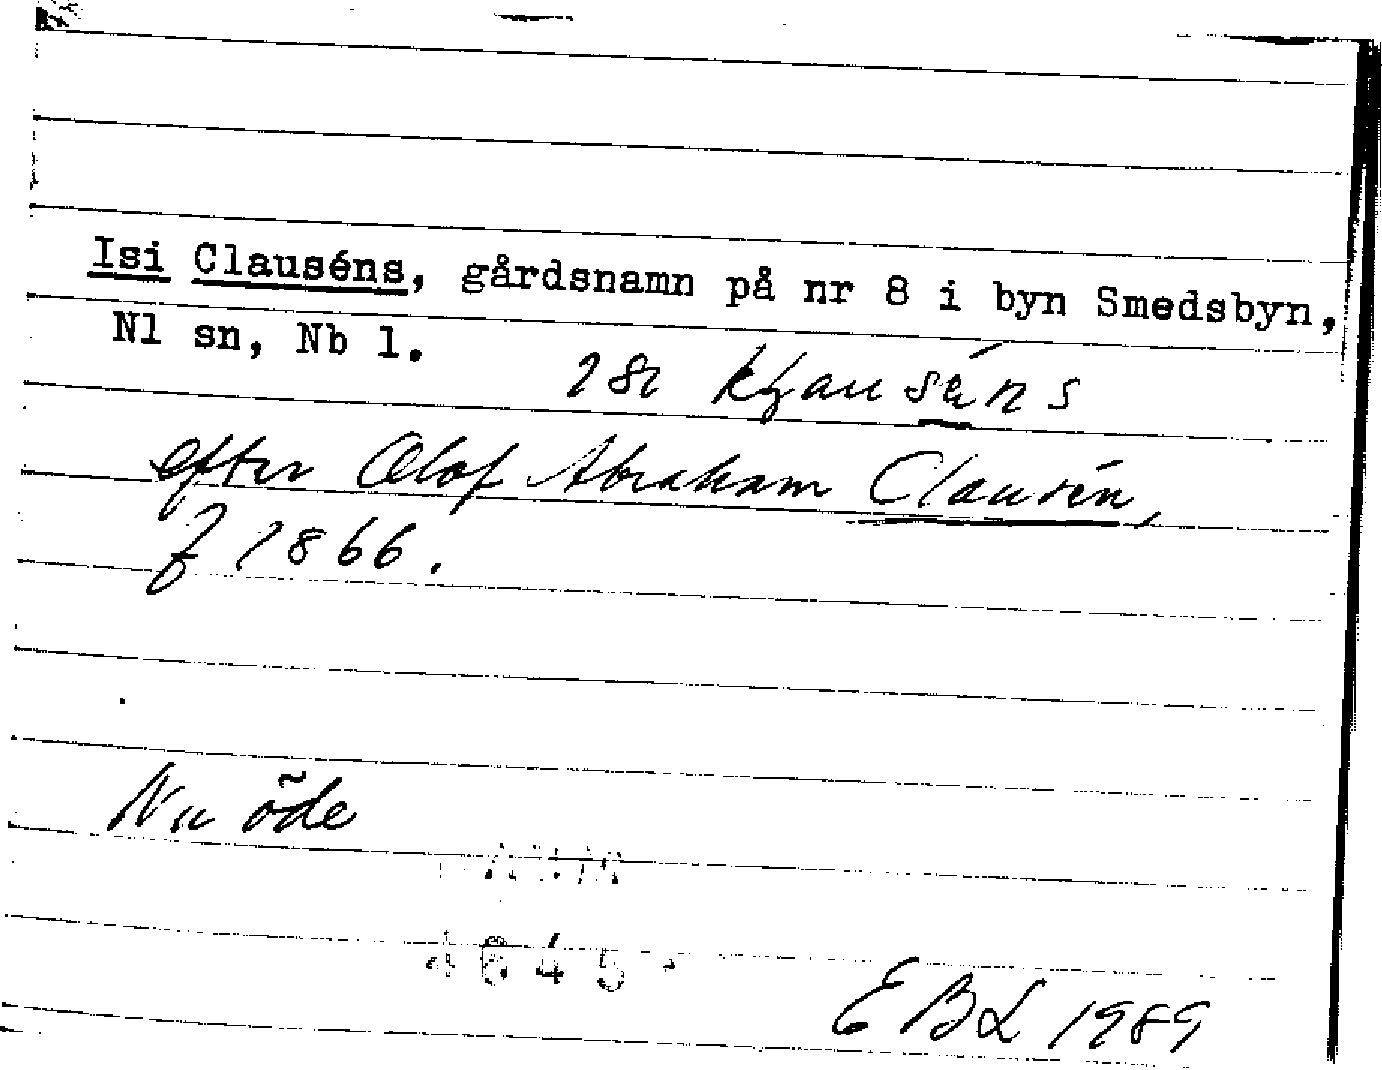 Isi Clauséns, gårdsnamn på nr 8 i byn Smedsbyn,
Nl sn, Nb l.
efter Olof Abraham Clausén,
f 1866.
Nu öde
EBL 1989